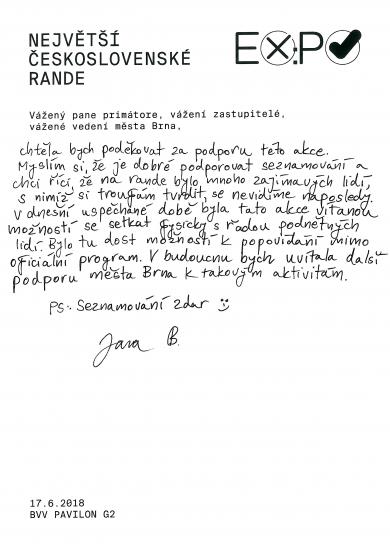 NEJVĚTŠÍ
ČESKOSLOVENSKÉ
RANDE
EXPO
Vážený pane primátore, vážení zastupitelé,
vážené vedení města Brna,
chtěla bych poděkovat za podporu této akce.
Myslím si, že je dobré podporovat seznamování a
chci říci, že na rande bylo mnoho zajímavých lidí,
s nimiž si troufám tvrdit, se nevidíme naposledy.
V dnešní uspěchané době byla tato akce vítanou
možností se setkat fyzicky s řadou podnětných
lidí. Bylo tu dost možností k popovídání mimo
oficiální program. V budoucnu bych uvítala další
podporu města Brna k takovým aktivitám.
PS: Seznamování zdar
Jana B.
17.6.2018
BVV PAVILON G2